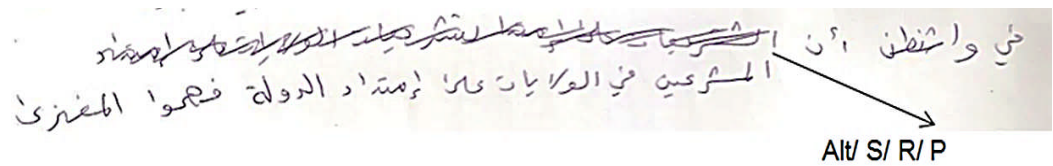 في واشنطن ، أن
المشرعين في الولايات على إمتداد الدولة فهموا المغزى
Alt/ S/ R/ P